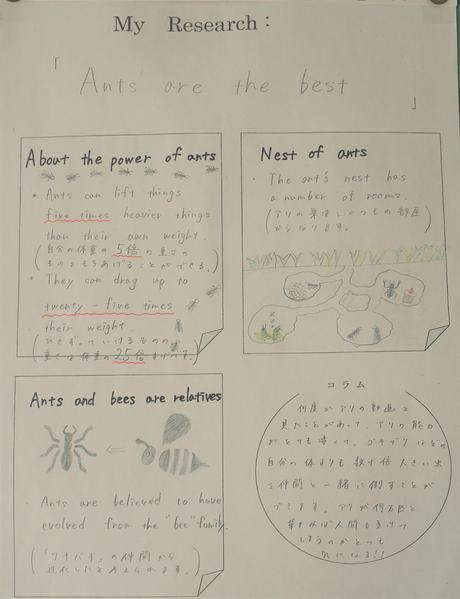 My Research:
「
Ants are the best
」
About the power of ants
・ Ants can lift things
five times heavier things
than their own weight.
(自分の体重の5倍の重さの
ものをもちあげることができる。)
・ They can drag up to
twenty-five times
their weight.
(ひきずっていけるものの
重さは体重の25倍までです。)
Nest of ants
・ The ant's nest has
a number of rooms.
(アリの巣はいくつもの部屋
からなります。)
Ants and bees are relatives
・ Ants are believed to have
evolved from the "bee" family.
(「ツチバチ」の仲間から
進化したと考えられるます。)
コラム
何度かアリの動画を
見たことがあって、アリの能力
がとても凄くて、ゴキブリなどの
自分の体よりも数十倍大きい虫
を仲間と一緒に倒すことが
できます。アリが何百匹と
集まれば人間も
しまうのかとても
気になる!!